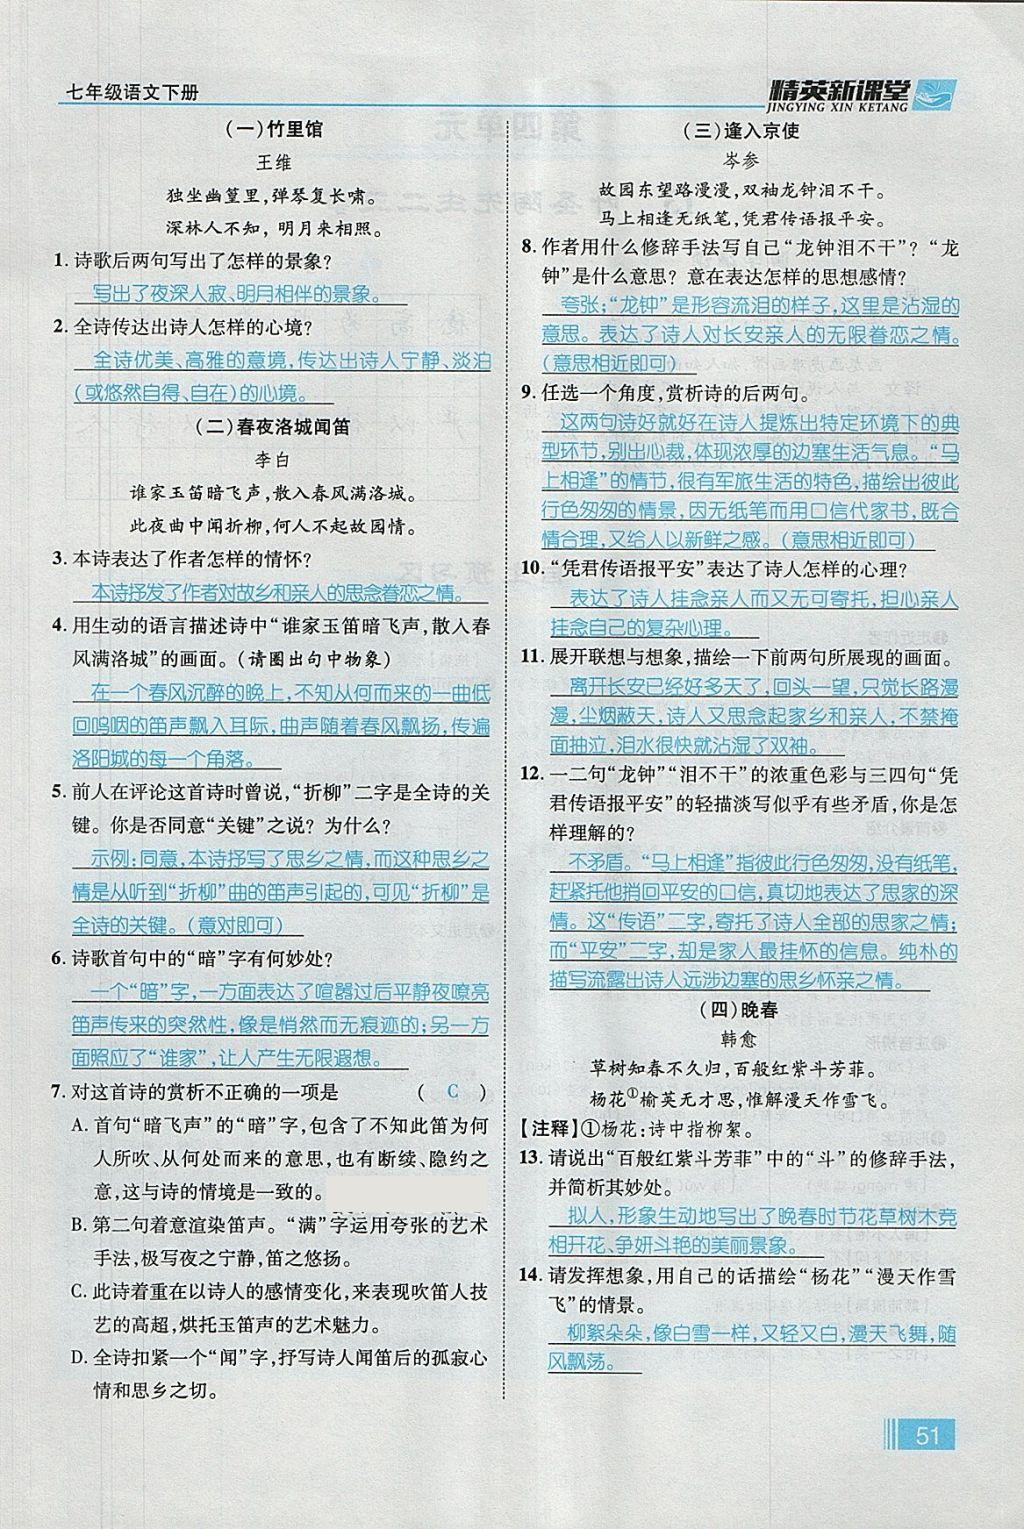 七年级语文下册
精英新课堂
JINGYING XIN KETANG
(一)竹里馆
王维
独坐幽篁里,弹琴复长啸。
深林人不知,明月来相照。
1. 诗歌后两句写出了怎样的景象?
写出了夜深人寂、明月相伴的景象。
2. 全诗传达出诗人怎样的心境?
全诗优美、高雅的意境,传达出诗人宁静、淡泊
(或悠然自得、自在)的心境。
(二)春夜洛城闻笛
李白
谁家玉笛暗飞声,散入春风满洛城。
此夜曲中闻折柳,何人不起故园情。
3. 本诗表达了作者怎样的情怀?
本诗抒发了作者对故乡和亲人的思念眷恋之情。
4. 用生动的语言描述诗中“谁家玉笛暗飞声,散入春
风满洛城”的画面。(请图出句中物象)
在一个春风沉醉的晚上,不知从何而来的一曲低
回呜咽的笛声飘入耳际,曲声随着春风飘扬,传遍
洛阳城的每一个角落。
5. 前人在评论这首诗时曾说,“折柳”二字是全诗的关
键。你是否同意“关键”之说? 为什么?
示例:同意,本诗抒写了思乡之情,而这种思乡之
情是从听到“折柳”曲的笛声引起的,可见“折柳”是
全诗的关键。(意对即可)
6. 诗歌首句中的“暗”字有何妙处?
一个“暗”字,一方面表达了喧嚣过后平静夜嘹亮
笛声传来的突然性,像是悄然而无痕迹的;另一方
面照应了“谁家”,让人产生无限遐想。
7. 对这首诗的赏析不正确的一项是 ( C )
A. 首句“暗飞声”的“暗”字,包含了不知此笛为何
人所吹、从何处而来的意思,也有断续、隐约之
意,这与诗的情境是一致的。
B. 第二句着意渲染笛声。“满”字运用夸张的艺术
手法,极写夜之宁静,笛之悠扬。
C. 此诗着重在以诗人的感情变化,来表现吹笛人技
艺的高超,烘托玉笛声的艺术魅力。
D. 全诗扣紧一个“闻”字,抒写诗人闻笛后的孤寂心
情和思乡之切。
(三)逢入京使
岑参
故园东望路漫漫,双袖龙钟泪不干。
马上相逢无纸笔,凭君传语报平安。
8. 作者用什么修辞手法写自己“龙钟泪不干”? “龙
钟”是什么意思? 意在表达怎样的思想感情?
夸张;“龙钟”是形容流泪的样子,这里是沾湿的
意思。表达了诗人对长安亲人的无限眷恋之情。
(意思相近即可)
9. 任选一个角度,赏析诗的后两句。
这两句诗好就好在诗人提炼出特定环境下的典
型环节,别出心裁,体现浓厚的边塞生活气息。“马
上相逢”的情节,很有军旅生活的特色,描绘出彼此
行色匆匆的情景,因无纸笔而用口信代家书,既合
情合理,又给人以新鲜之感。(意思相近即可)
10. “凭君传语报平安”表达了诗人怎样的心理?
表达了诗人挂念亲人而又无可寄托,担心亲人
挂念自己的复杂心理。
11. 展开联想与想象,描绘一下前两句所展现的画面。
离开长安已经好多天了,回头一望,只觉长路漫
漫,尘烟蔽天,诗人又思念起家乡和亲人,不禁掩
面抽泣,泪水很快就沾湿了双袖。
12. 一二句“龙钟”“泪不干”的浓重色彩与三四句“凭
君传语报平安”的轻描淡写似乎有些矛盾,你是怎
样理解的?
不矛盾。“马上相逢”指彼此行色匆匆,没有纸笔,
赶紧托他捎回平安的口信,真切地表达了思家的深
情。这“传语”二字,寄托了诗人全部的思家之情;
而“平安”二字,却是家人最挂怀的信息。纯朴的
描写流露出诗人远涉边塞的思乡怀亲之情。
(四)晚春
韩愈
草树知春不久归,百般红紫斗芳菲。
杨花①榆荚无才思,惟解漫天作雪飞。
【注释】①杨花:诗中指柳絮。
13. 请说出“百般红紫斗芳菲”中的“斗”的修辞手法,
并简析其妙处。
拟人,形象生动地写出了晚春时节花草树木竞
相开花、争妍斗艳的美丽景象。
14. 请发挥想象,用自己的话描绘“杨花”“漫天作雪
飞”的情景。
柳絮朵朵,像白雪一样,又轻又白,漫天飞舞,随
风飘荡。
51